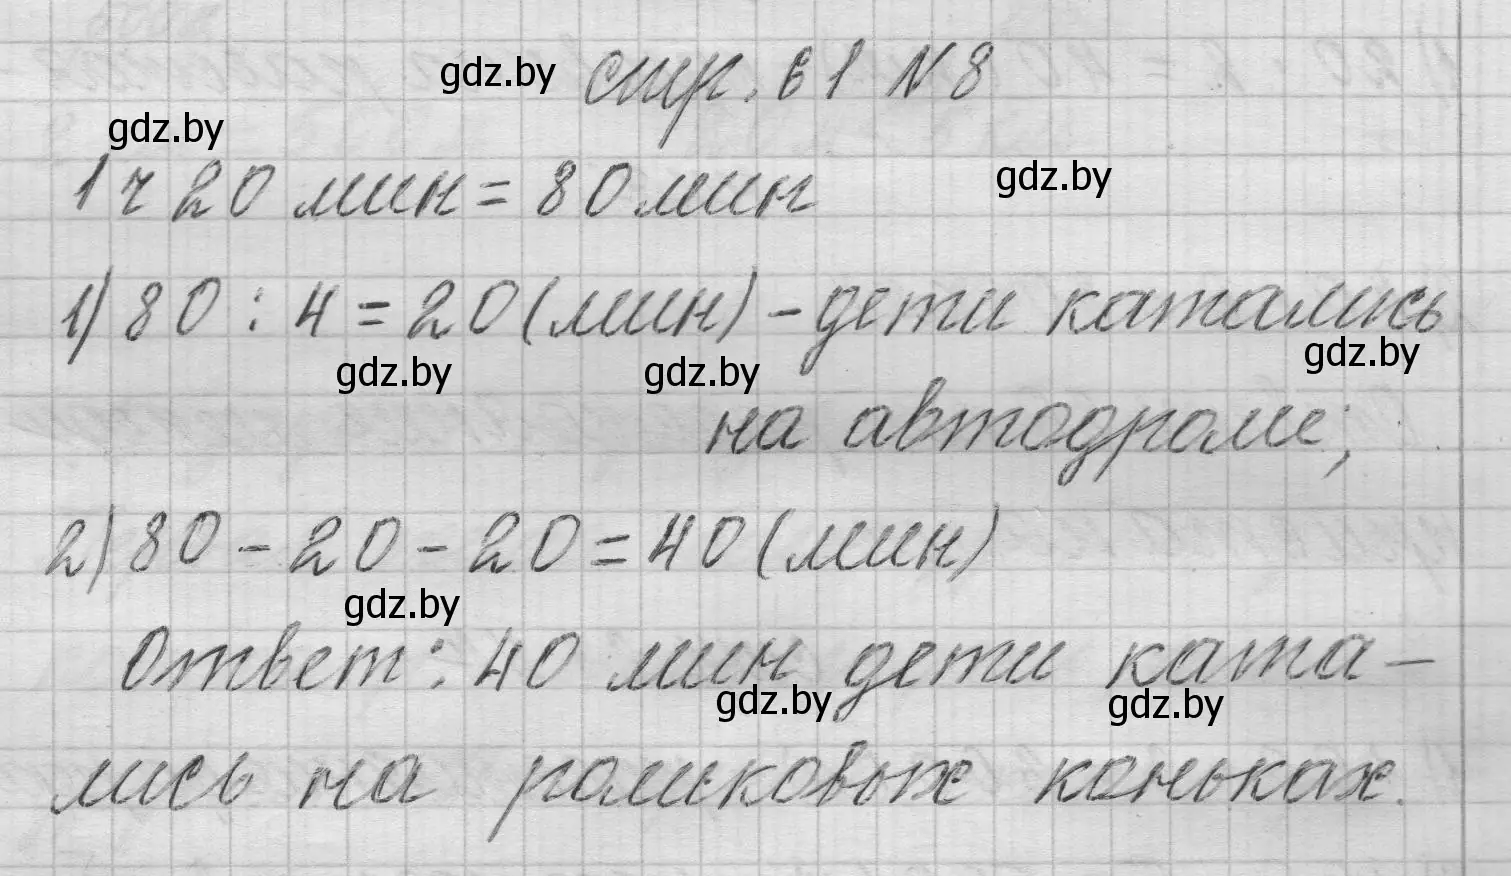 gdz.by стр. 61 N 8
gdz.by
1 ч 20 мин = 80 мин gdz.by
1) 80 : 4 = 20 (мин) - дети катались
gdz.by gdz.by gdz.by
на автодроме;
2) 80 - 20 - 20 = 40 (мин)
gdz.by
Ответ: 40 мин дети ката-
gdz.by gdz.by
лись на роликовых коньках.